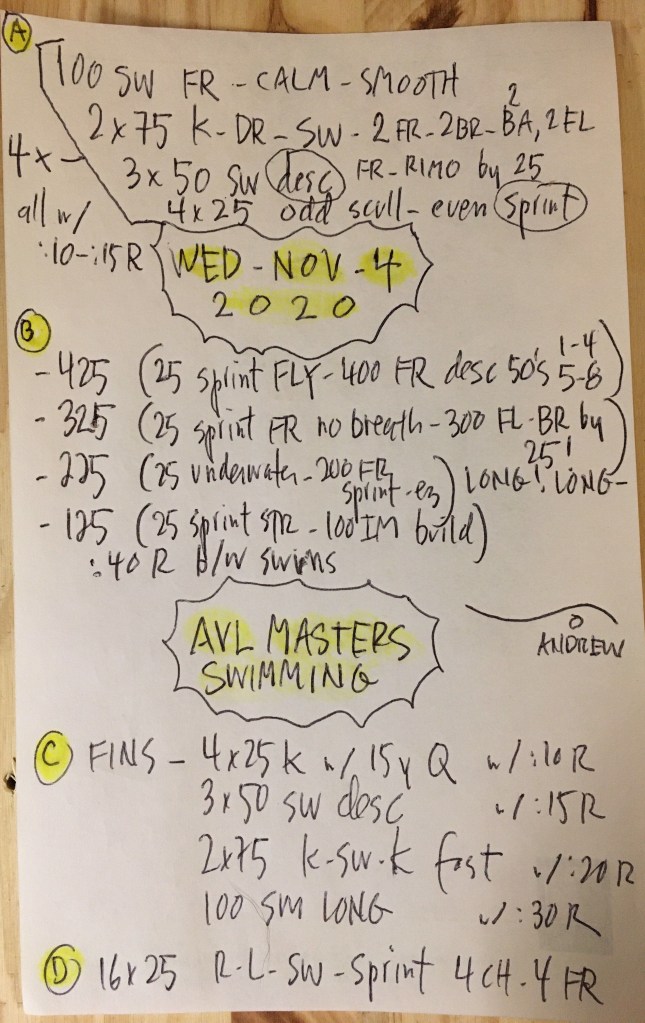 A
100 SW FR - CALM - SMOOTH
2
2x75 K-DR-SW-2FR-2BR-BA, 2FL
4x
3x50 SW desc FR-RIMO by 25
all w/
4x25 odd scull - even sprint
:10-:15R
WED - NOV - 4
2020
B
1-4
- 425 (25 sprint FLY - 400 FR desc 50's 5-8)
- 325 (25 sprint FR no breath - 300 FL-BR by
25!)
- 225 (25 underwater - 200 FR
sprint - ez) LONG! LONG-
- 125 (25 sprint STR - 100 IM build)
:40 R b/w swims
ANDREW
AVL MASTERS
SWIMMING
C FINS - 4x25 K w/ 15y Q w/:10R
3x50 SW desc w/:15R
2x75 K-SW-K fast w/:20R
100 SM LONG w/:30R
D 16x25 R-L-SW-Sprint 4CH-4FR